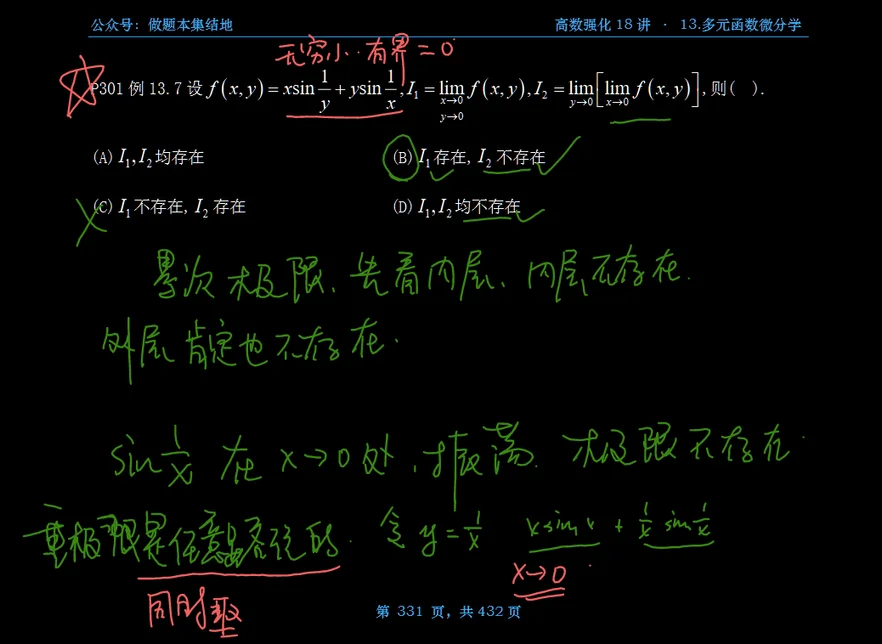 公众号：做题本集结地 高数强化 18 讲 · 13.多元函数微分学
无穷小·有界=0
P301 例 13.7 设 f(x,y)=xsin 1/y + ysin 1/x, I₁ = lim_{x→0, y→0} f(x,y), I₂ = lim_{y→0}[lim_{x→0} f(x,y)], 则( ).
(A) I₁,I₂ 均存在 (B) I₁ 存在, I₂ 不存在
(C) I₁ 不存在, I₂ 存在 (D) I₁,I₂ 均不存在
累次极限、先看内层、内层不存在.
外层肯定也不存在.
sin 1/x 在 x→0 处, 振荡. 极限不存在.
重极限是任意路径的. 令 y = 1/x xsin x + 1/x sin 1/x
x→0
同时趋
第 331 页，共 432 页